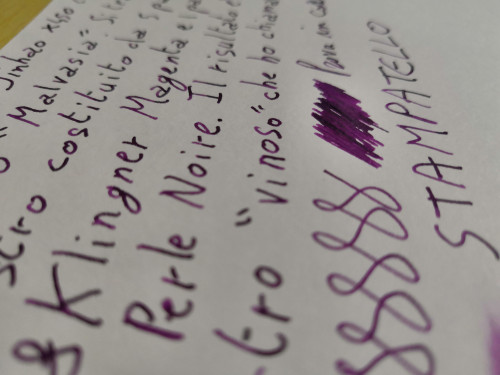 Jinhao x159
" Malvasia" Si tr
scuro costituito da 5 pa
& Klingner Magenta e
Perle Noire. Il risultato è
tro "vinoso" che ho chiama
Prova in
STAMPATELLO